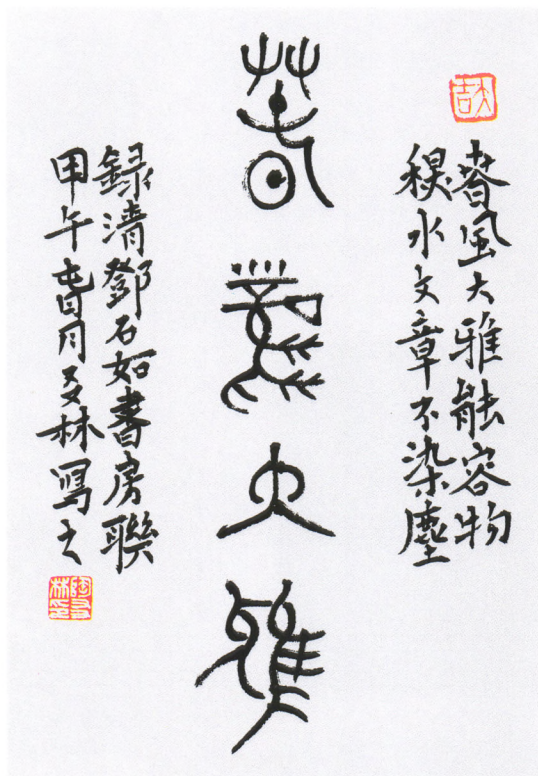 大吉
春風大雅能容物
秋水文章不染塵
春風大雅
録清鄧石如書房聯
甲午春月友林寫之
陶友林印